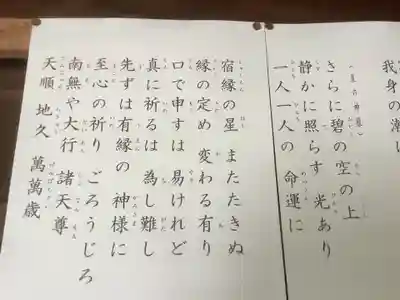 我身の
（星の神尊）
さらに碧の空の上
静かに照らす 光あり
一人一人の 命運に
宿縁の星 またたきぬ
縁の定め 変わる有り
口で申すは 易けれど
真に祈るは 為し難し
先ずは有縁の 神様に
至心の祈り ごろうじろ
南無や大行 諸天尊
天順 地久 萬萬歳